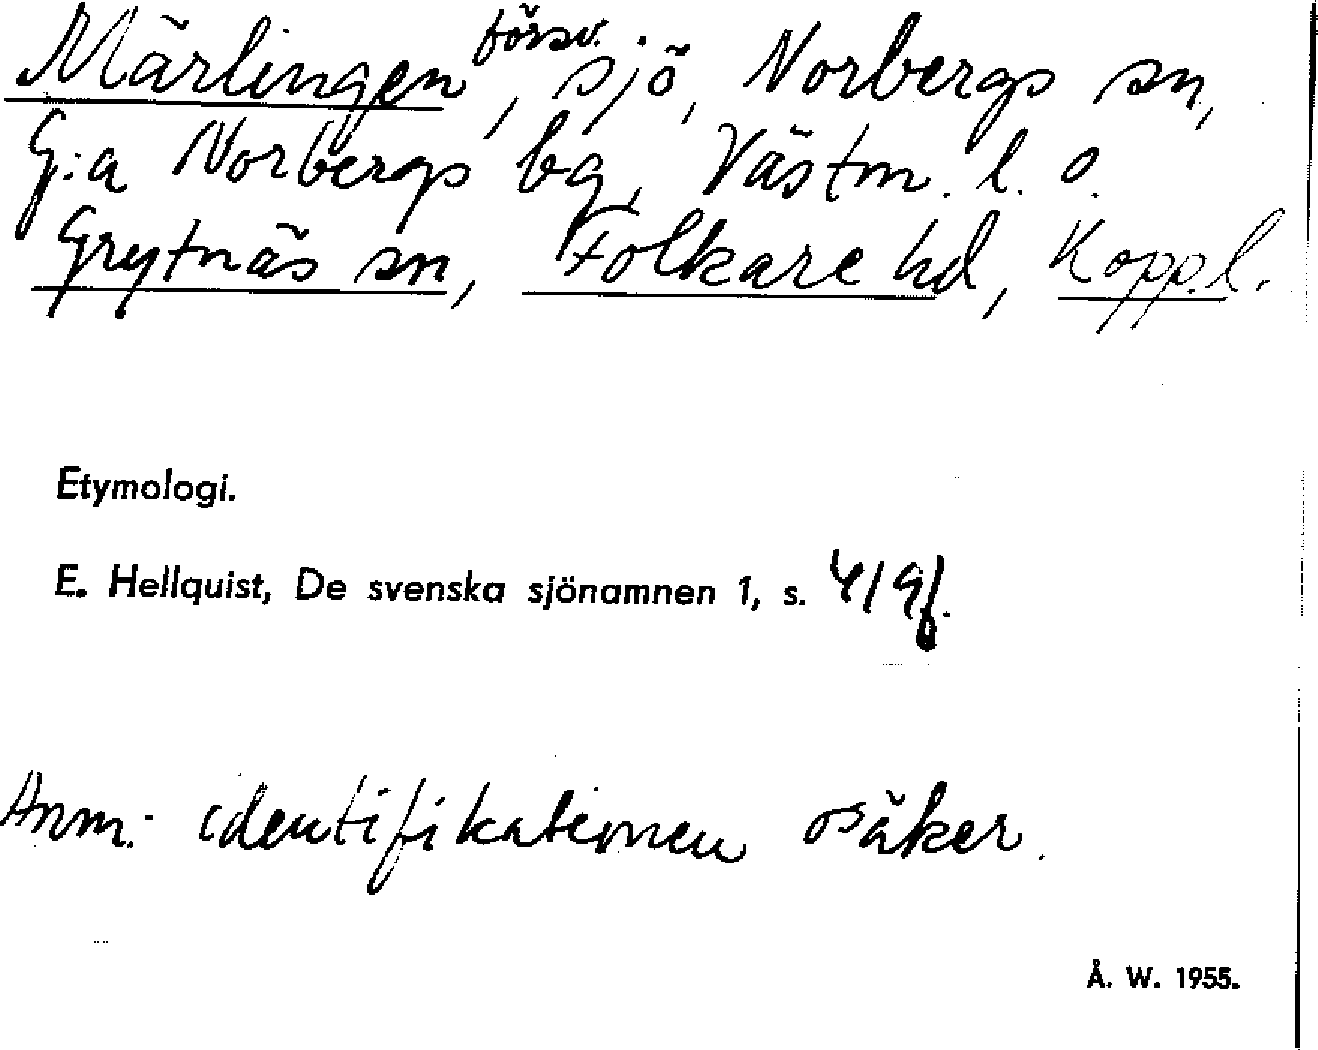 Märlingen försv., sjö, Norbergs sn,
G:a Norbergs bg, Västm. l. o.
Grytnäs sn, Folkare hd, Kopp.l.
Etymologi.
E. Hellquist, De svenska sjönamnen 1, s. 419f.
Anm: identifikationen osäker.
Å. W. 1955.